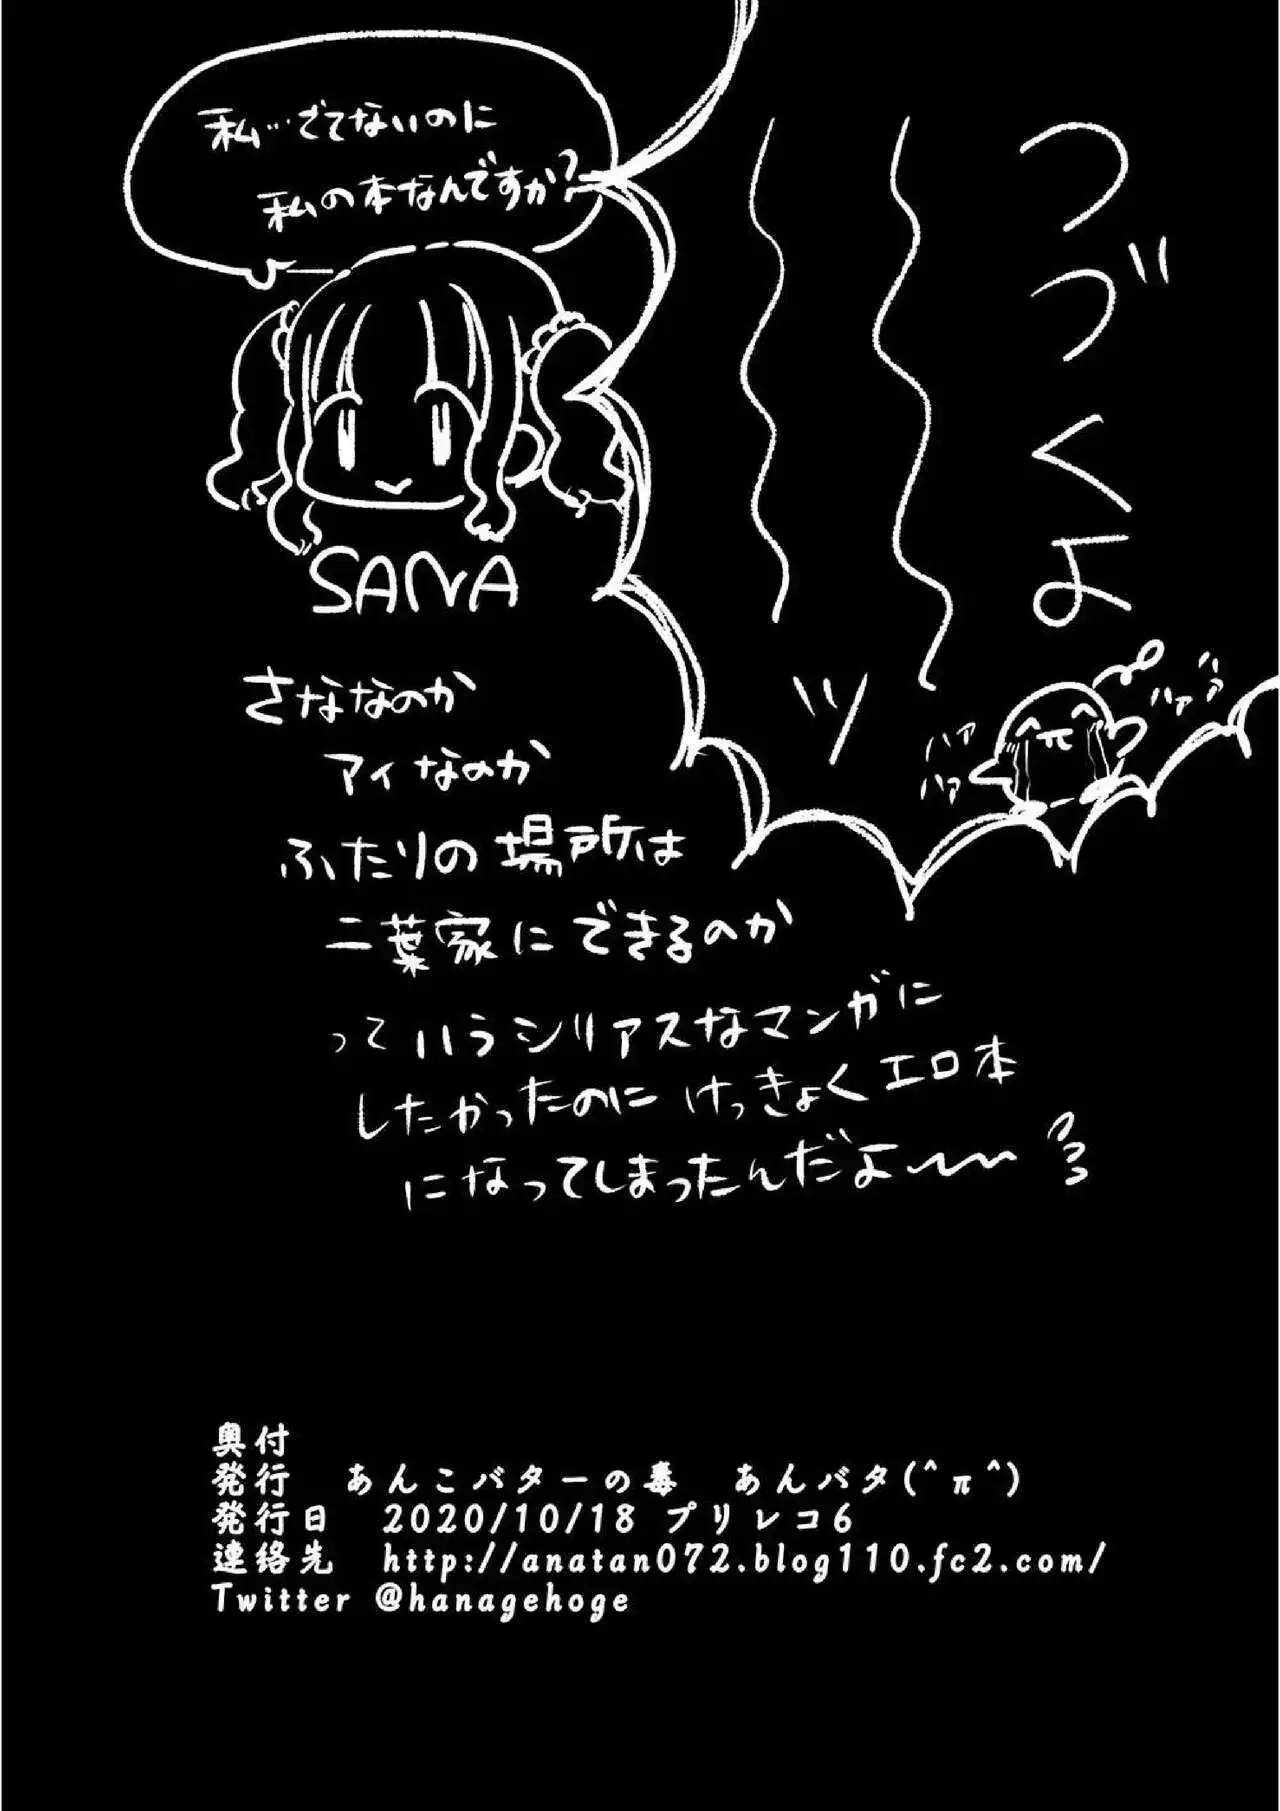 つづくよ
〜〜ッ
ハァ
ハァ
ハァ
ハァ
私…でてないのに
私の本なんですか?
SANA
さななのか
アイなのか
ふたりの場所は
二葉家にできるのか
っていうシリアスなマンガに
したかったのに けっきょくエロ本
になってしまったんだよ〜〜
奥付
発行 あんこバターの毒 あんバタ(^π^)
発行日 2020/10/18 プリレコ6
連絡先 http://anatan072.blog110.fc2.com/
Twitter @hanagehoge